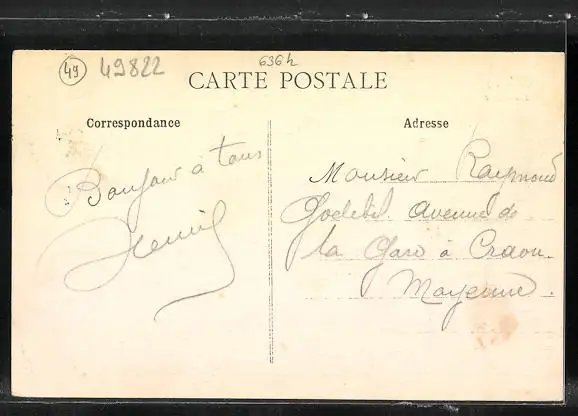 49 49822 636h
CARTE POSTALE
Correspondance
Bonjour à tous
Adresse
Monsieur Raymond
Godebil avenue de
la Gare à Craon.
Mayenne.